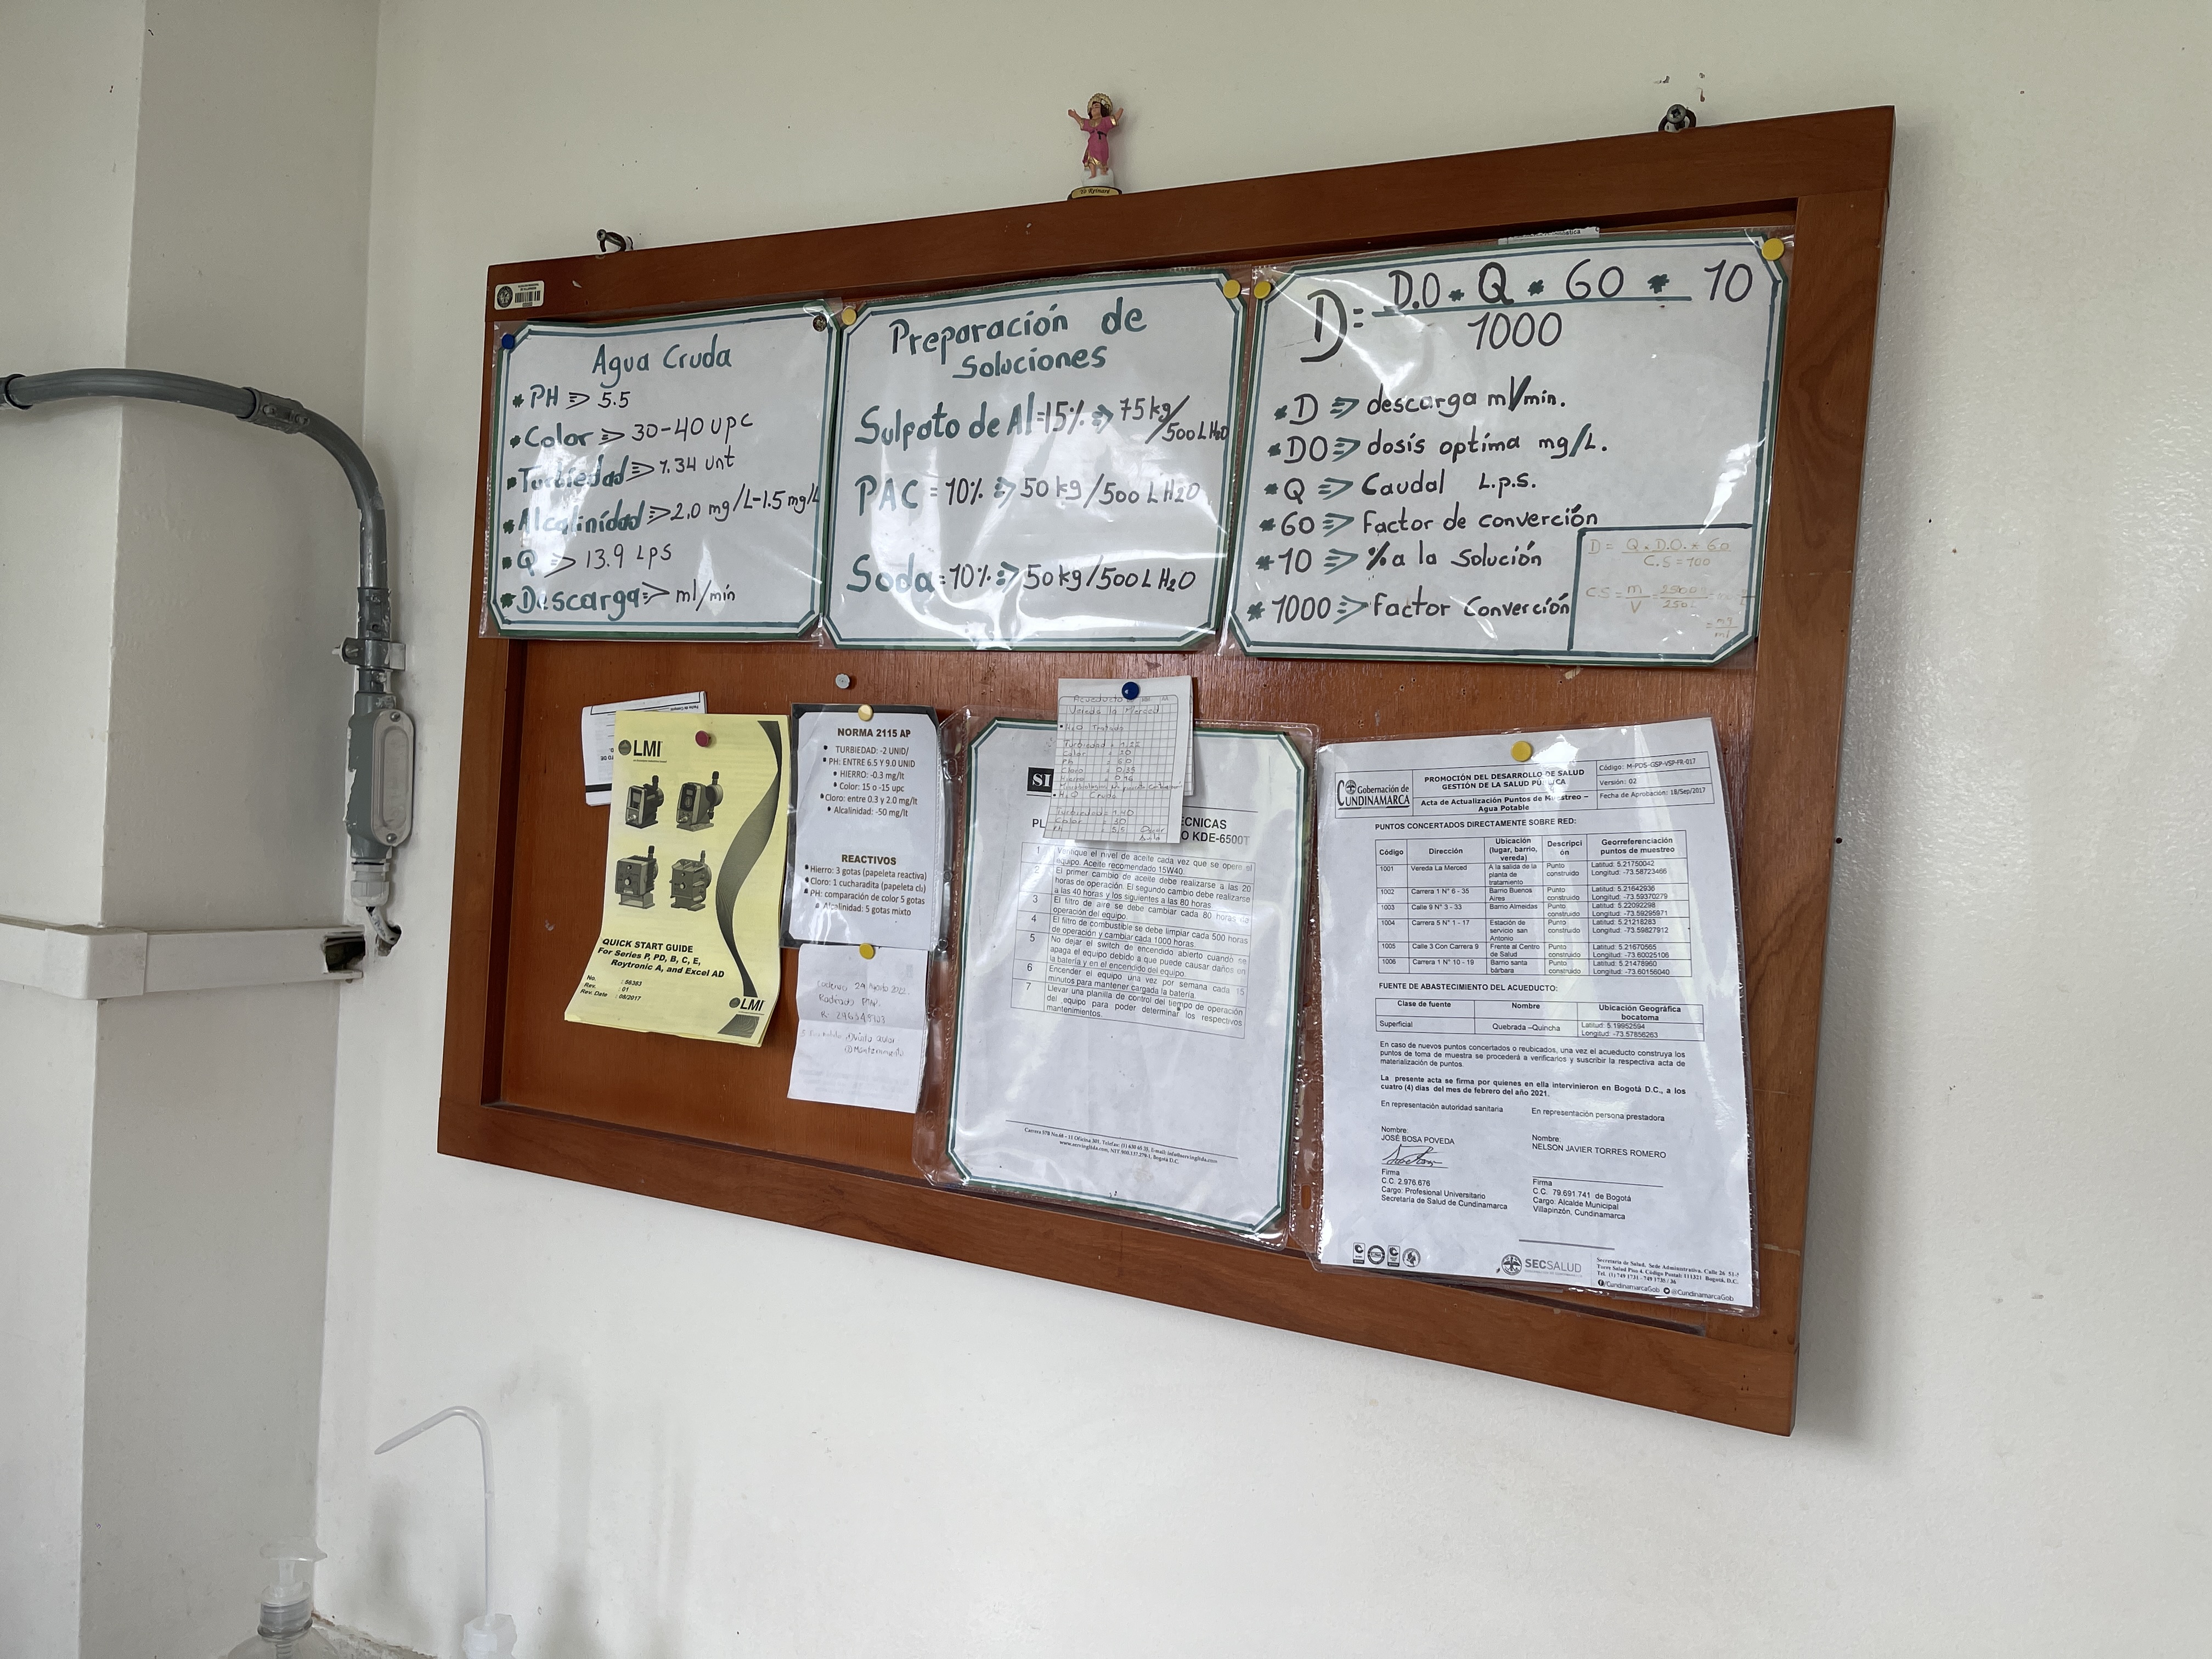 Yo Reinaré
Agua Cruda
* PH => 5.5
* Color => 30-40 UPC
* Turbiedad => 1.34 unt
* Alcalinidad => 2.0 mg/L-1.5 mg/L
* Q => 13.9 LPS
* Descarga => ml/min
Preparación de
Soluciones
Sulfato de Al=15% => 75kg/500L H2O
PAC = 10% => 50 kg/500 L H2O
Soda = 10% => 50kg/500L H2O
D = D.O * Q * 60 * 10
1000
* D => descarga ml/min.
* DO => dosís optima mg/L.
* Q => Caudal L.p.s.
* 60 => Factor de converción
* 10 => % a la Solución
* 1000 => Factor Converción
D = Q * D.O. * 60
C.S = 100
C.S = m
V
LMI
QUICK START GUIDE
For Series P, PD, B, C, E,
Roytronic A, and Excel AD
No. : 56383
Rev. : 01
Rev. Date : 08/2017
LMI
NORMA 2115 AP
• TURBIEDAD: -2 UNID/
• PH: ENTRE 6.5 Y 9.0 UNID
• HIERRO: -0.3 mg/lt
• Color: 15 o -15 upc
• Cloro: entre 0.3 y 2.0 mg/lt
• Alcalinidad: -50 mg/lt
REACTIVOS
• Hierro: 3 gotas (papeleta reactiva)
• Cloro: 1 cucharadita (papeleta cl2)
• PH: comparación de color 5 gotas
• Alcalinidad: 5 gotas mixto
29 Agosto
Radicado
Mantenimiento
Acueducto
Vereda la Merced
• H2O Tratada
Turbiedad
Color
Ph
Cloro
Hierro
• H2O Cruda
Turbiedad
Color
Ph 5.5
ECNICAS
O KDE-6500T
1 Verifique el nivel de aceite cada vez que se opere el
equipo. Aceite recomendado 15W40.
2 El primer cambio de aceite debe realizarse a las 20
horas de operación. El segundo cambio debe realizarse
a las 40 horas y los siguientes a las 80 horas.
3 El filtro de aire se debe cambiar cada 80 horas de
operación del equipo.
4 El filtro de combustible se debe limpiar cada 500 horas
de operación y cambiar cada 1000 horas.
5 No dejar el switch de encendido abierto cuando se
apaga el equipo debido a que puede causar daños en
la batería y en el encendido del equipo.
6 Encender el equipo una vez por semana cada 15
minutos para mantener cargada la batería.
7 Llevar una planilla de control del tiempo de operación
del equipo para poder determinar los respectivos
mantenimientos.
Gobernación de
CUNDINAMARCA
PROMOCIÓN DEL DESARROLLO DE SALUD
GESTIÓN DE LA SALUD PÚBLICA
Acta de Actualización Puntos de Muestreo –
Agua Potable
Código: M-PDS-GSP-VSP-FR-017
Versión: 02
Fecha de Aprobación: 18/Sep/2017
PUNTOS CONCERTADOS DIRECTAMENTE SOBRE RED:
Código Dirección Ubicación (lugar, barrio, vereda) Descripción Georreferenciación puntos de muestreo
1001 Vereda La Merced A la salida de la planta de tratamiento Punto construido Latitud: 5.21750042 Longitud: -73.58723466
1002 Carrera 1 N° 6 - 35 Barrio Buenos Aires Punto construido Latitud: 5.21642936 Longitud: -73.59370279
1003 Calle 9 N° 3 - 33 Barrio Almeidas Punto construido Latitud: 5.22092298 Longitud: -73.59295971
1004 Carrera 5 N° 1 - 17 Estación de servicio san Antonio Punto construido Latitud: 5.21218283 Longitud: -73.59827912
1005 Calle 3 Con Carrera 9 Frente al Centro de Salud Punto construido Latitud: 5.21670565 Longitud: -73.60025106
1006 Carrera 1 N° 10 - 19 Barrio santa bárbara Punto construido Latitud: 5.21478960 Longitud: -73.60156040
FUENTE DE ABASTECIMIENTO DEL ACUEDUCTO:
Clase de fuente Nombre Ubicación Geográfica bocatoma
Superficial Quebrada –Quincha Latitud: 5.19952594 Longitud: -73.57856263
En caso de nuevos puntos concertados o reubicados, una vez el acueducto construya los
puntos de toma de muestra se procederá a verificarlos y suscribir la respectiva acta de
materialización de puntos.
La presente acta se firma por quienes en ella intervinieron en Bogotá D.C., a los
cuatro (4) días del mes de febrero del año 2021.
En representación autoridad sanitaria En representación persona prestadora
Nombre: Nombre:
JOSÉ BOSA POVEDA NELSON JAVIER TORRES ROMERO
Firma Firma
C.C. 2.976.676 C.C. 79.691.741 de Bogotá
Cargo: Profesional Universitario Cargo: Alcalde Municipal
Secretaría de Salud de Cundinamarca Villapinzón, Cundinamarca
SECSALUD
Secretaría de Salud, Sede Administrativa. Calle 26 51-53
Torre Salud Piso 6. Código Postal: 111321 Bogotá, D.C.
/CundinamarcaGob @CundinamarcaGob